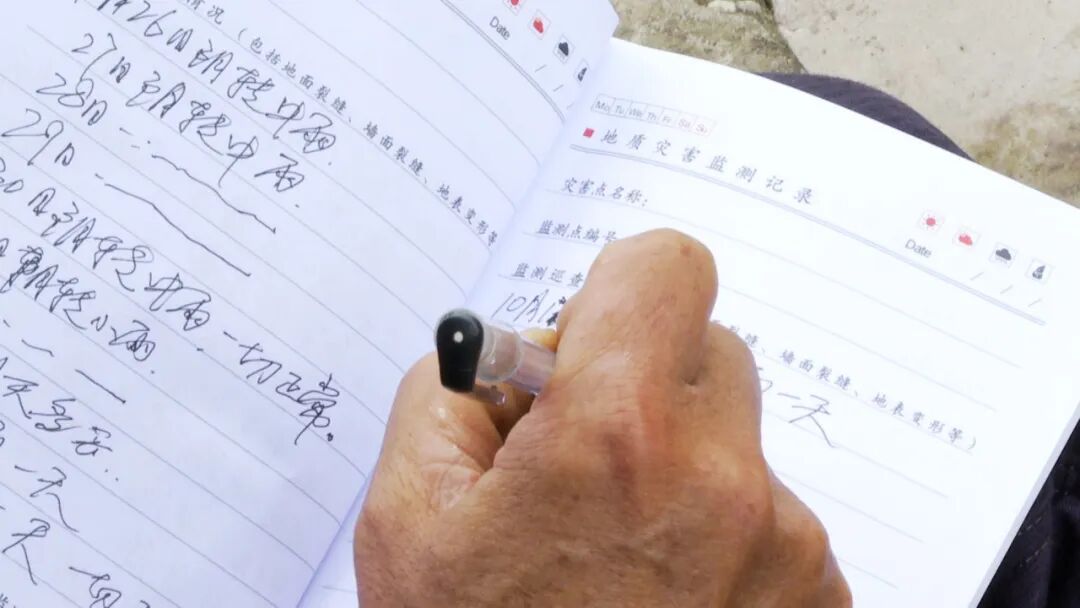 情况（包括地面裂缝、墙面裂缝、地表变形等
Date
26日 阴转中雨.
27日 阴转中雨.
28日
29日
30日阴转中雨一切正常。
转小雨.
天多云.
一天
一天 一切
Mo Tu We Th Fr Sa Su
地质灾害监测记录
灾害点名称:
Date
监测点编号
监测巡查
10月1
裂缝、墙面裂缝、地表变形等）
一天